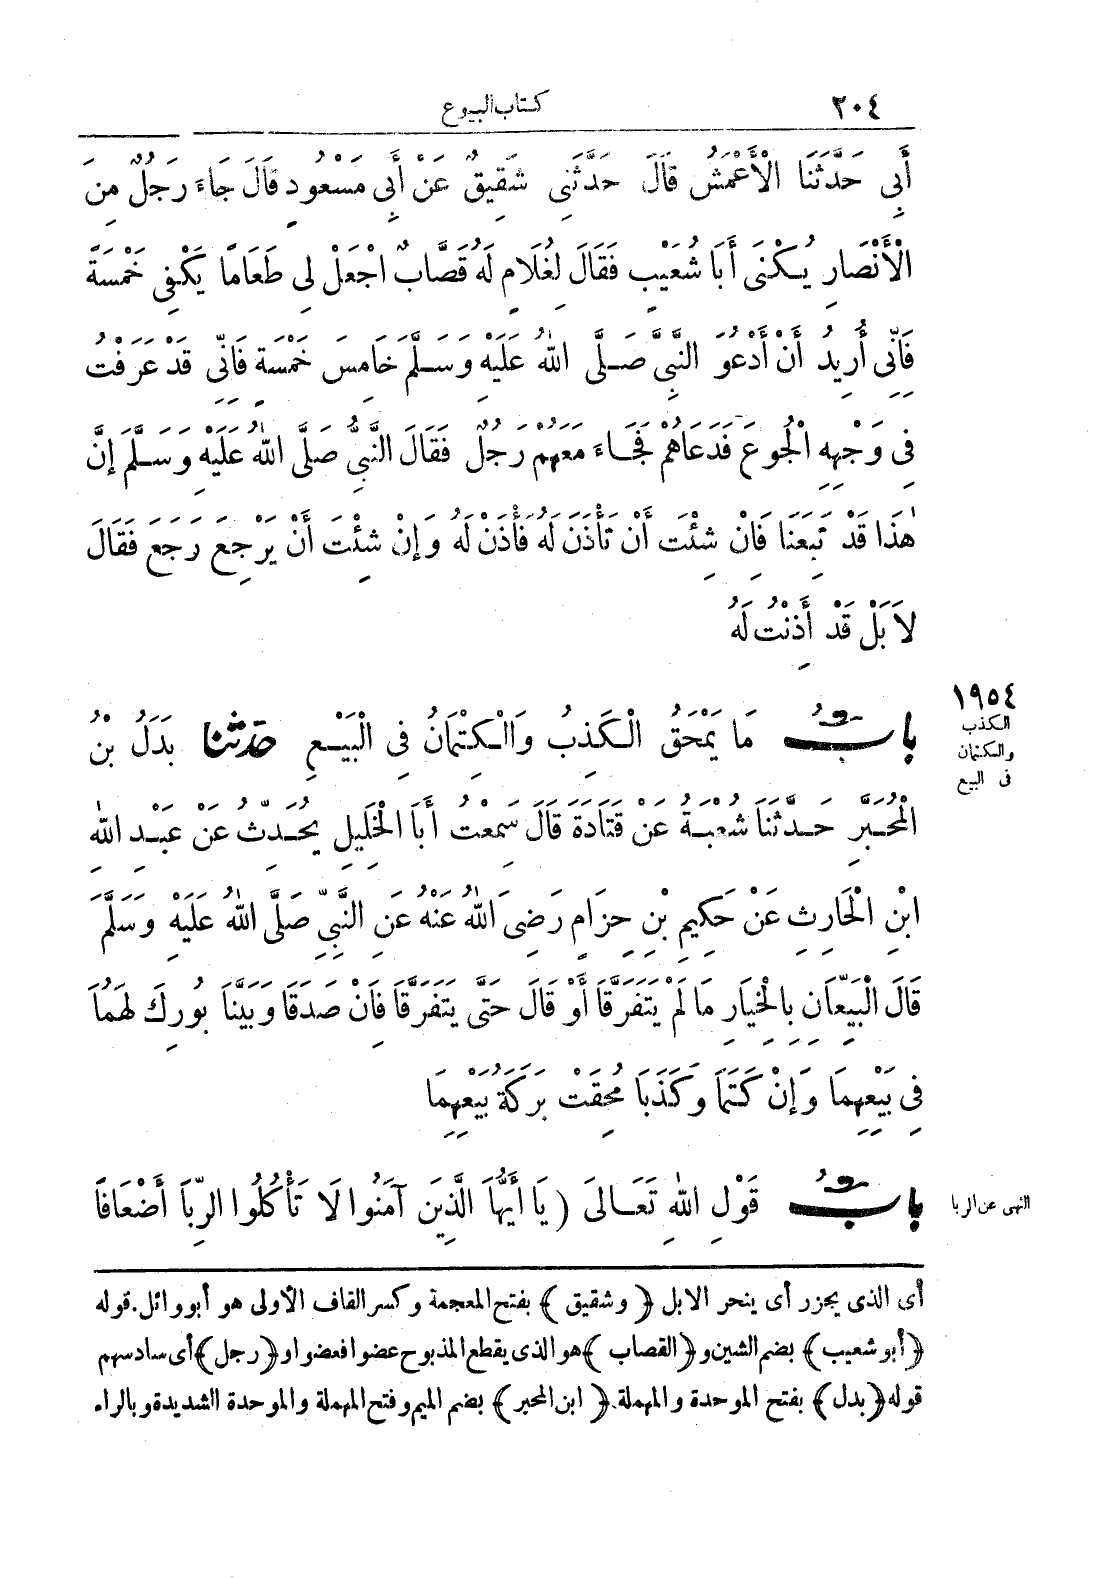 ٢٠٤
كتاب البيوع
أَبِي حَدَّثَنَا الْأَعْمَشُ قَالَ حَدَّثَنِي شَقِيقٌ عَنْ أَبِي مَسْعُودٍ قَالَ جَاءَ رَجُلٌ مِنَ
الْأَنْصَارِ يُكْنَى أَبَا شُعَيْبٍ فَقَالَ لِغُلَامٍ لَهُ قَصَّابٌ اجْعَلْ لِي طَعَامًا يَكْفِي خَمْسَةً
فَإِنِّي أُرِيدُ أَنْ أَدْعُوَ النَّبِيَّ صَلَّى اللهُ عَلَيْهِ وَسَلَّمَ خَامِسَ خَمْسَةٍ فَإِنِّي قَدْ عَرَفْتُ
فِي وَجْهِهِ الْجُوعَ فَدَعَاهُمْ فَجَاءَ مَعَهُمْ رَجُلٌ فَقَالَ النَّبِيُّ صَلَّى اللهُ عَلَيْهِ وَسَلَّمَ إِنَّ
هٰذَا قَدْ تَبِعَنَا فَإِنْ شِئْتَ أَنْ تَأْذَنَ لَهُ فَأْذَنْ لَهُ وَإِنْ شِئْتَ أَنْ يَرْجِعَ رَجَعَ فَقَالَ
لَا بَلْ قَدْ أَذِنْتُ لَهُ
١٩٥٤
الكذب
والكتمان
فى البيع
بَابُ مَا يَمْحَقُ الْكَذِبُ وَالْكِتْمَانُ فِي الْبَيْعِ حَدَّثَنَا بَدَلُ بْنُ
الْمُحَبَّرِ حَدَّثَنَا شُعْبَةُ عَنْ قَتَادَةَ قَالَ سَمِعْتُ أَبَا الْخَلِيلِ يُحَدِّثُ عَنْ عَبْدِ اللهِ
ابْنِ الْحَارِثِ عَنْ حَكِيمِ بْنِ حِزَامٍ رَضِيَ اللهُ عَنْهُ عَنِ النَّبِيِّ صَلَّى اللهُ عَلَيْهِ وَسَلَّمَ
قَالَ الْبَيِّعَانِ بِالْخِيَارِ مَا لَمْ يَتَفَرَّقَا أَوْ قَالَ حَتَّى يَتَفَرَّقَا فَإِنْ صَدَقَا وَبَيَّنَا بُورِكَ لَهُمَا
فِي بَيْعِهِمَا وَإِنْ كَتَمَا وَكَذَبَا مُحِقَتْ بَرَكَةُ بَيْعِهِمَا
بَابُ قَوْلِ اللهِ تَعَالَى (يَا أَيُّهَا الَّذِينَ آمَنُوا لَا تَأْكُلُوا الرِّبَا أَضْعَافًا
النهى عن الربا
أى الذى يجزر أى ينحر الابل ﴿وشقيق﴾ بفتح المعجمة وكسر القاف الأولى هو أبو وائل. قوله
﴿أبو شعيب﴾ بضم الشين و﴿القصاب﴾ هو الذى يقطع المذبوح عضوا فعضوا و﴿رجل﴾ أى سادسهم
قوله ﴿بدل﴾ بفتح الموحدة والمهملة. ﴿ابن المحبر﴾ بضم الميم وفتح المهملة والموحدة الشديدة وبالراء